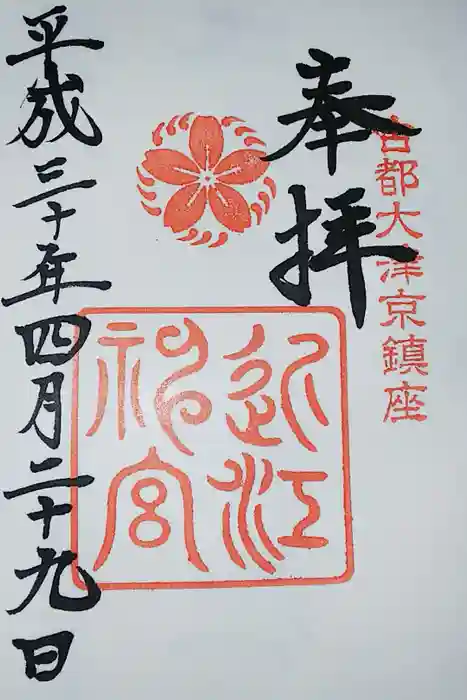 古都大津京鎮座
奉拝
近江
神宮
平成三十年四月二十九日